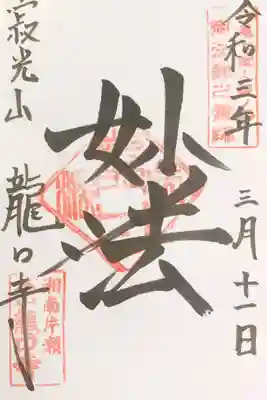 令和三年
三月十一日
妙法
寂光山
龍口寺
相南片瀬
龍口寺